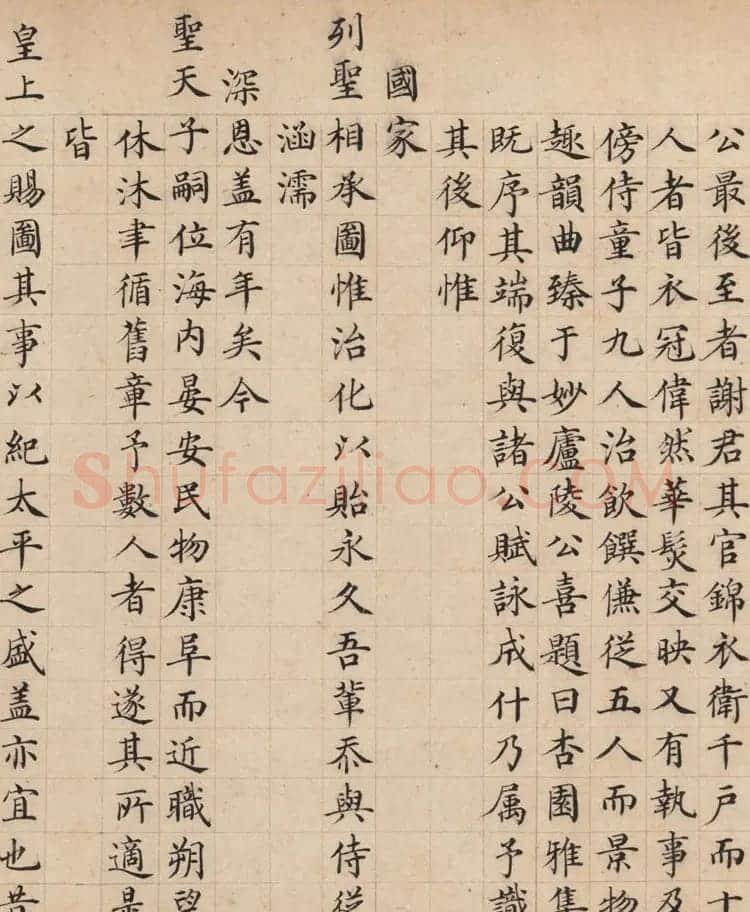 公最後至者謝君其官錦衣衛千戶而十
人者皆衣冠偉然華髮交映又有執事及
傍侍童子九人治飲饌傔從五人而景物
趣韻曲臻于妙廬陵公喜題曰杏園雅集
既序其端復與諸公賦詠成什乃属予識
其後仰惟
國家
列聖相承圖惟治化以貽永久吾軰忝與侍從
涵濡
深恩盖有年矣今
聖天子嗣位海内晏安民物康阜而近職朔望
休沐聿循舊章予數人者得遂其所適是
皆
皇上之賜圖其事以紀太平之盛盖亦宜也昔
Shufaziliao.COM